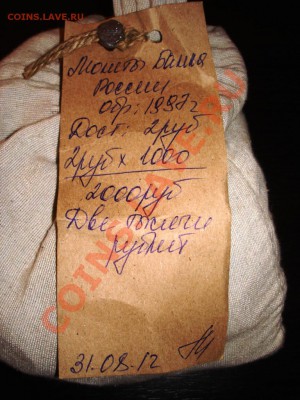 COINS.LAVE.RU
Монеты Банка
России
обр: 1997 г
Дост: 2 руб
2 руб х 1000
2000 руб
Две тысячи
рублей
31.08.12
COINS.LAVE.RU